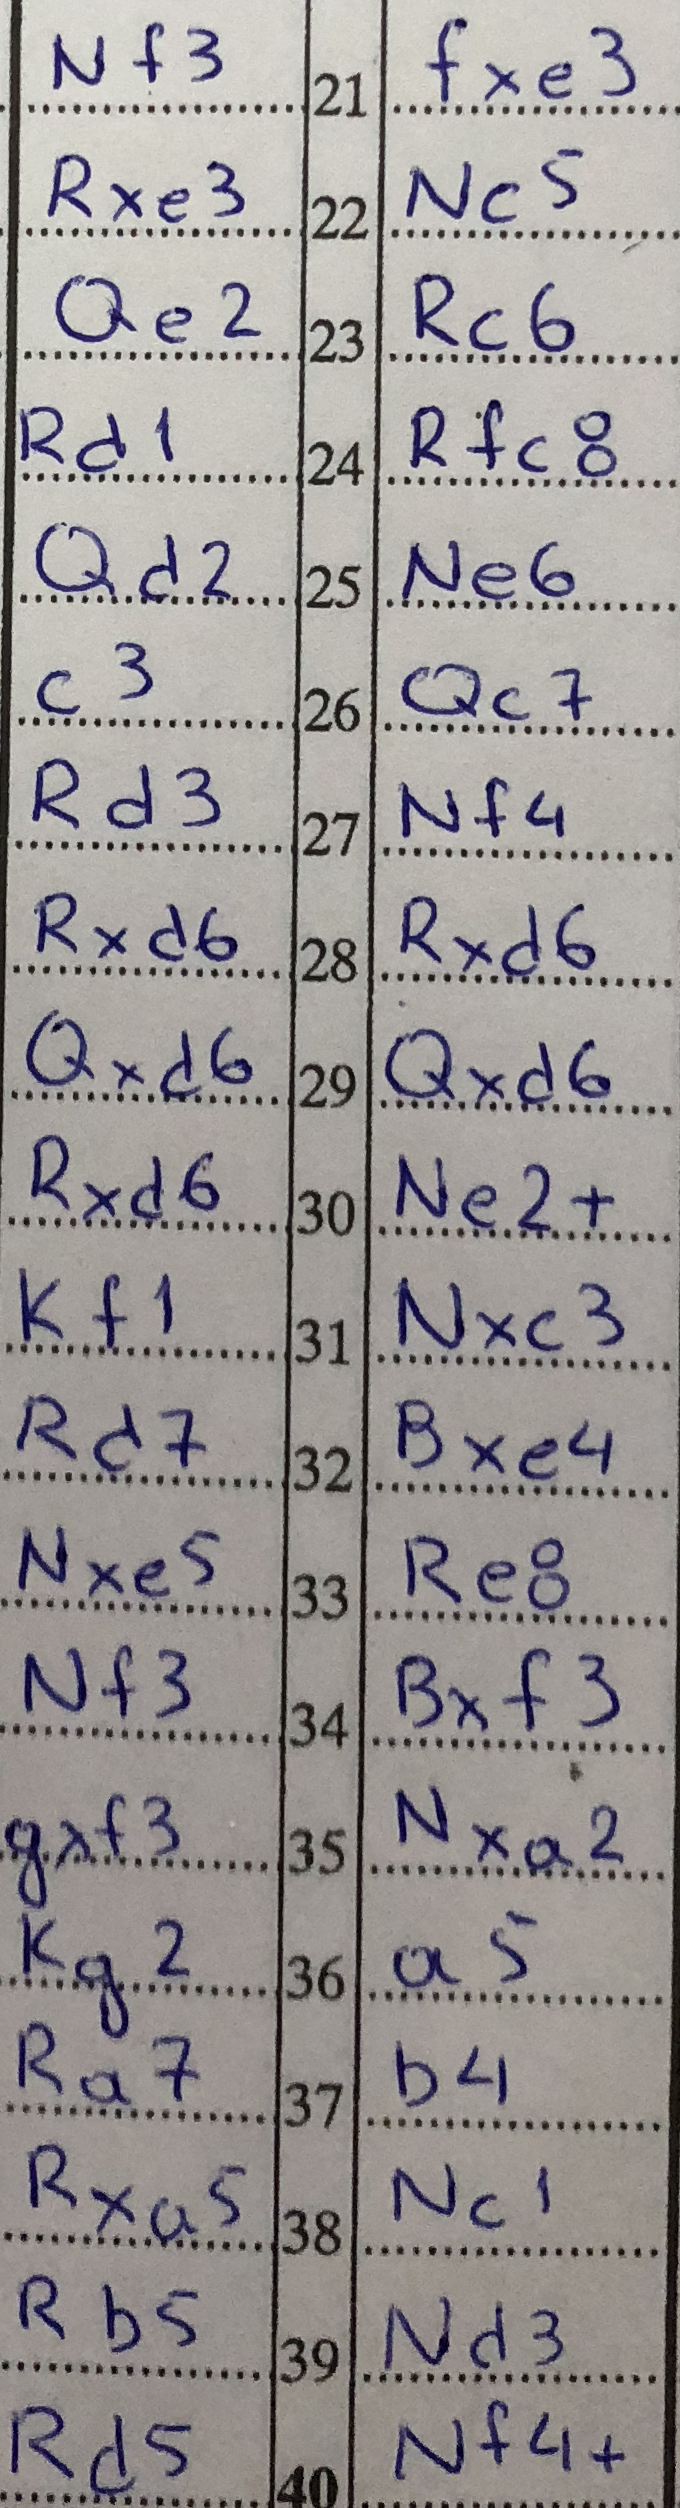 Nf3 21 fxe3
Rxe3 22 Nc5
Qe2 23 Rc6
Rd1 24 Rfc8
Qd2 25 Ne6
c3 26 Qc7
Rd3 27 Nf4
Rxd6 28 Rxd6
Qxd6 29 Qxd6
Rxd6 30 Ne2+
Kf1 31 Nxc3
Rd7 32 Bxe4
Nxe5 33 Re8
Nf3 34 Bxf3
gxf3 35 Nxa2
Kg2 36 a5
Ra7 37 b4
Rxa5 38 Nc1
Rb5 39 Nd3
Rd5 40 Nf4+